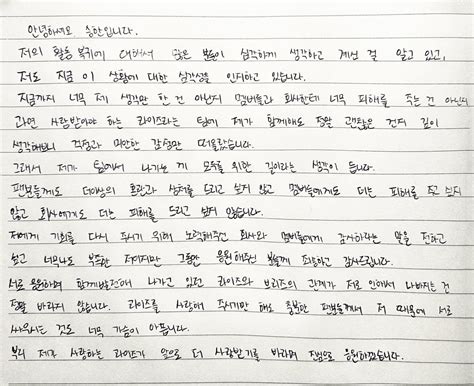 안녕하세요 승한입니다.
저의 활동 복귀에 대해서 많은 분들이 심각하게 생각하고 계신 걸 알고 있고,
저도 지금 이 상황에 대한 심각성을 인지하고 있습니다.
지금까지 너무 제 생각만 한 건 아닌지 멤버들과 회사한테 너무 피해를 주는 건 아닌지
라면 사랑받아야 하는 라이즈라는 팀에 제가 함께해도 정말 괜찮은 건지 깊이
생각해보니 걱정과 미안한 감정만 떠올랐습니다.
그래서 제가 팀에서 나가는 게 모두를 위한 길이라는 생각이 듭니다.
팬분들께도 더이상의 혼란과 상처를 드리고 싶지 않고 멤버들에게도 더는 피해를 주고 싶지
않고 회사에게도 더는 피해를 드리고 싶지 않습니다.
저에게 기회를 다시 주시기 위해 노력해주신 회사와 멤버들에게 감사하다는 말을 전하고
싶고 너무나도 부족한 저이지만 그동안 응원해주신 분들께 죄송하고 감사드립니다.
서로 응원하며 함께 발전해 나가고 있던 라이즈와 브리즈의 관계가 저로 인해서 나빠지는 건
정말 바라지 않습니다. 라이즈를 사랑해 주시기만 해도 충분한 팬분들께서 저 때문에 서로
싸우시는 것도 너무 가슴이 아픕니다.
부디 제가 사랑하는 라이즈가 앞으로 더 사랑받기를 바라며 진심으로 응원하겠습니다.